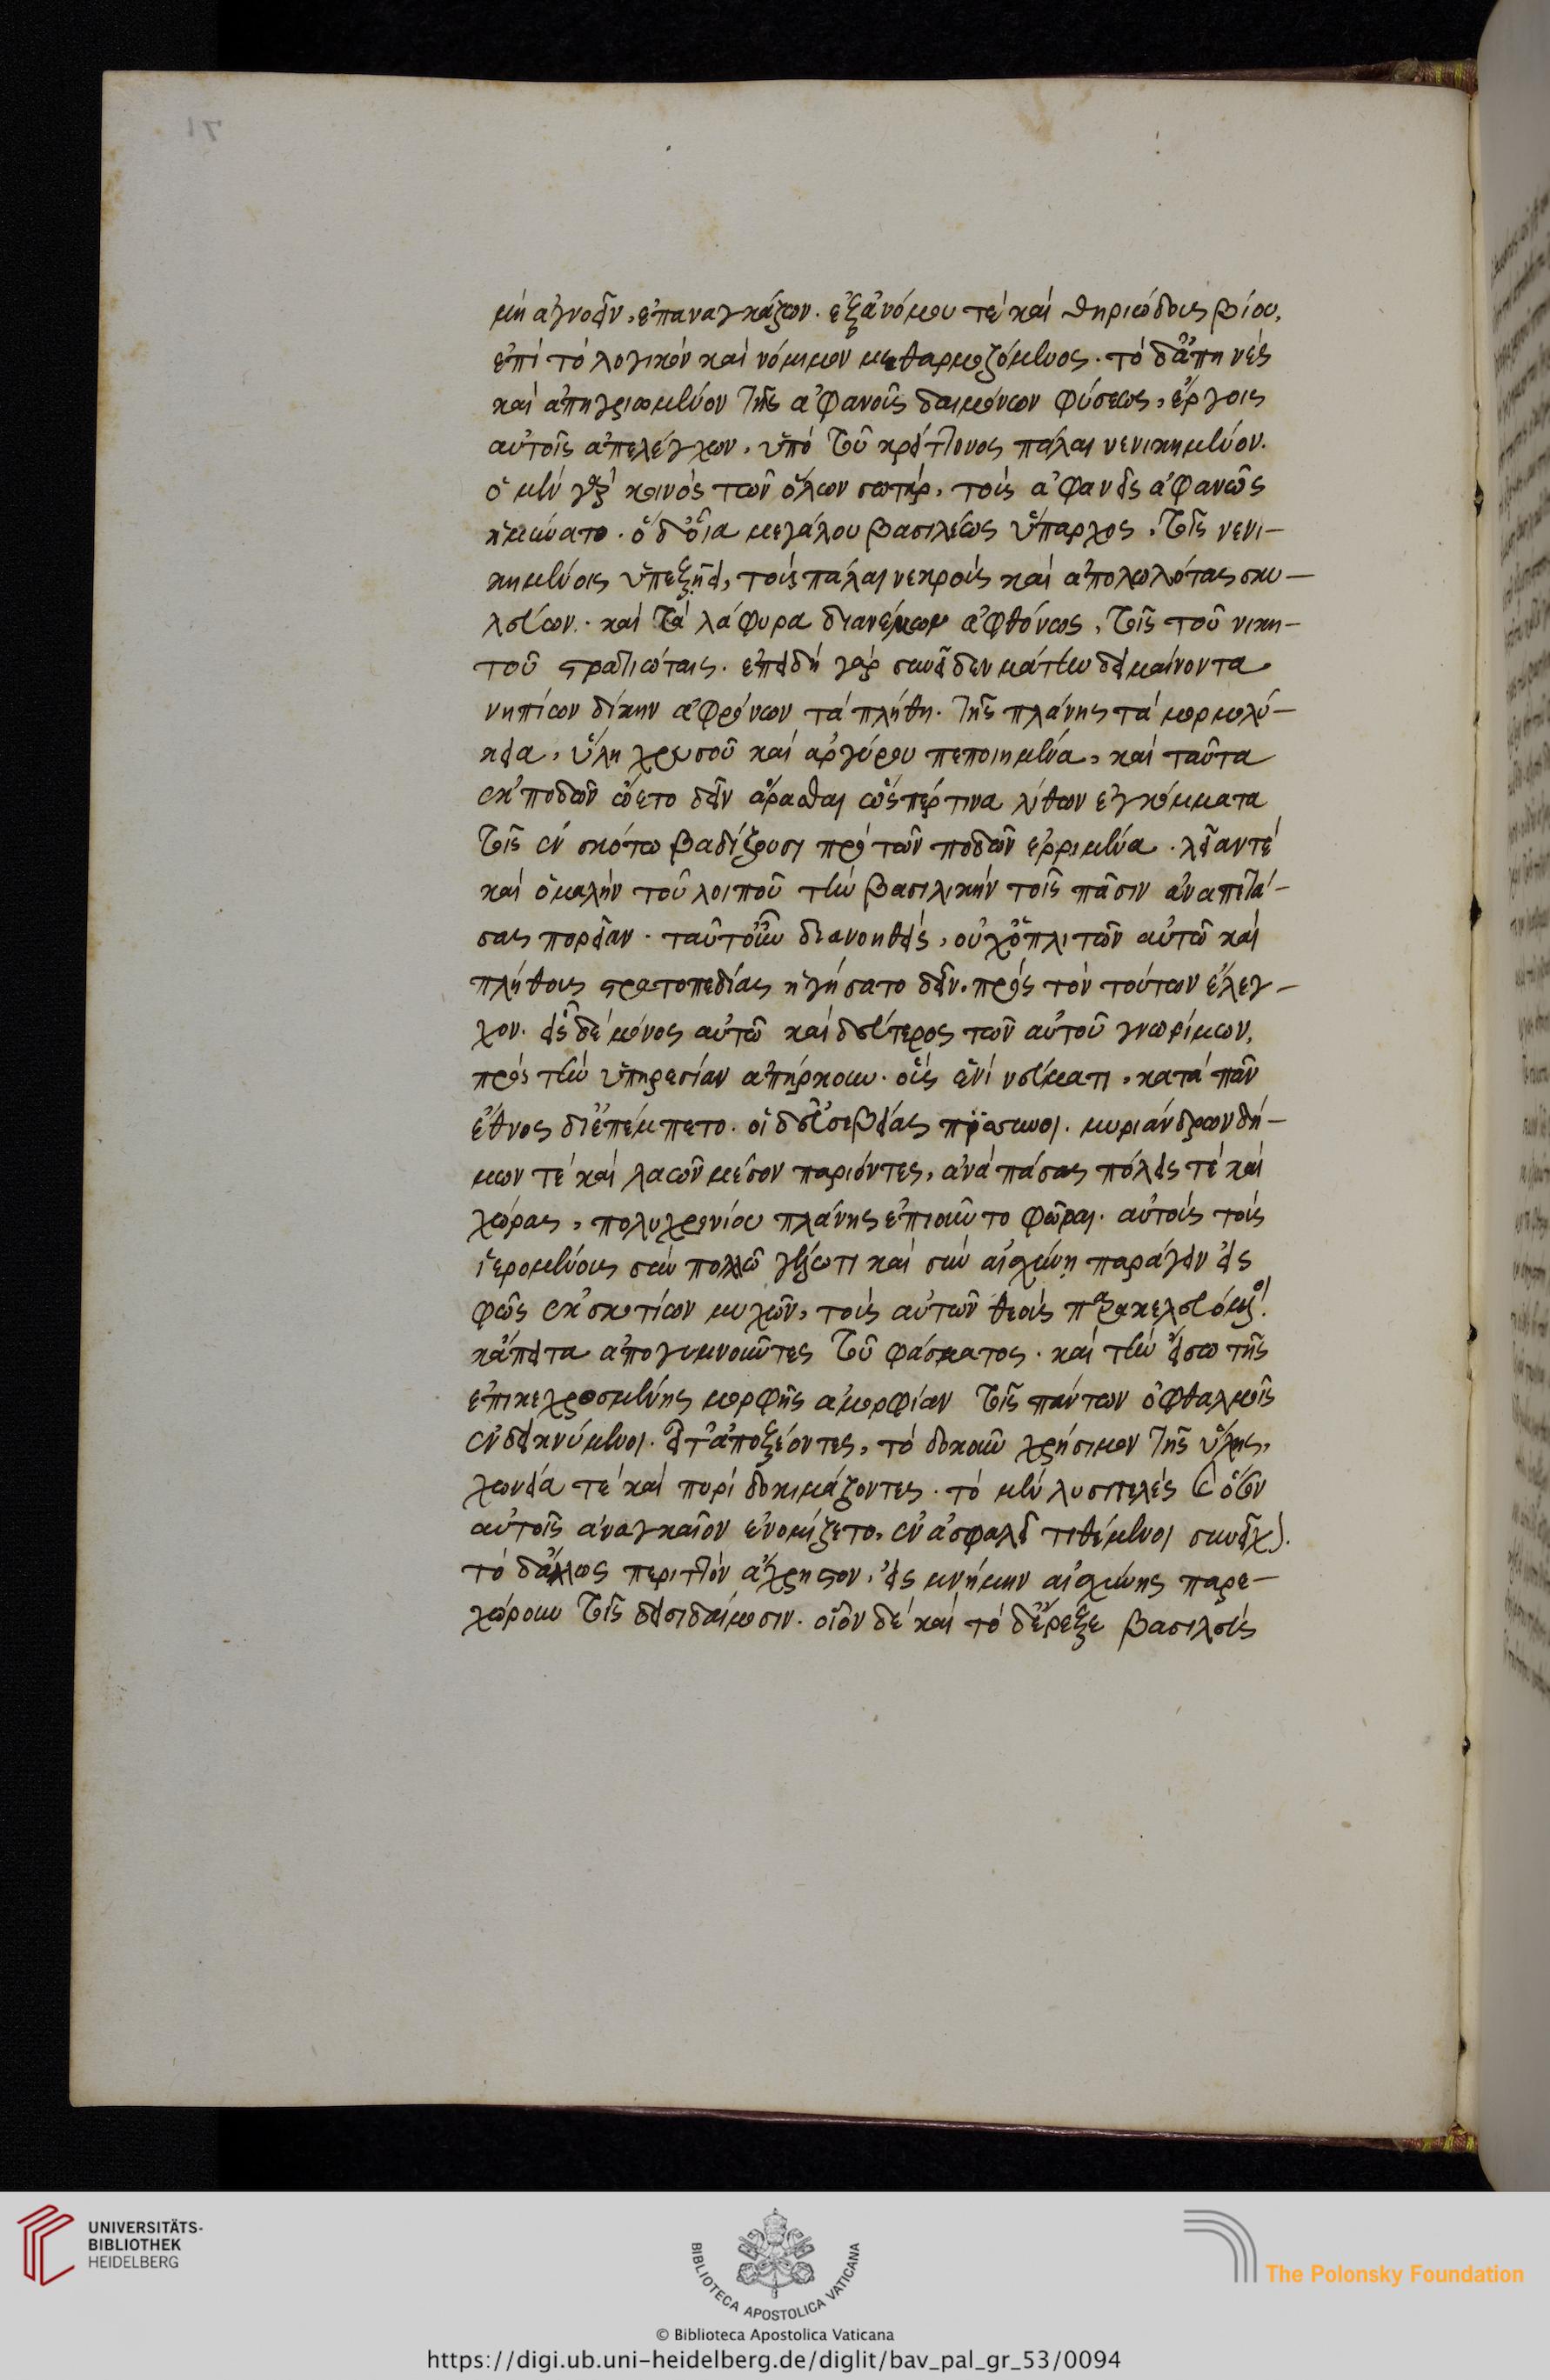 μὴ ἀγνοεῖν, ἐπαναγκάζων. ἐξ ἀνόμου τὲ καὶ θηριώδους βίου,
ἐπὶ τὸ λογικὸν καὶ νόμιμον μεθαρμοζόμενος. τὸ δ' ἀπηνὲς
καὶ ἀπηγριωμένον τῆς ἀφανοῦς δαιμόνων φύσεως, ἔργοις
αὐτοῖς ἀπελέγχων, ὑπὸ τοῦ κρείττονος πάλαι νενικημένον.
ὁ μὲν γὰρ κοινὸς τῶν ὅλων σωτὴρ, τοὺς ἀφανεῖς ἀφανῶς
ἠμύνατο. ὁ δ' οἷα μεγάλου βασιλέως ὕπαρχος, τοῖς νενι-
κημένοις ὑπεξῄει, τοὺς πάλαι νεκροὺς καὶ ἀπολωλότας σκυ-
λεύων. καὶ τὰ λάφυρα διανέμων ἀφθόνως, τοῖς τοῦ νικη-
τοῦ στρατιώταις. ἐπειδὴ γὰρ συνεῖδεν μάτην δειμαίνοντα
νηπίων δίκην ἀφρόνων τὰ πλήθη. τῆς πλάνης τὰ μορμολύ-
κεια, ὕλη χρυσοῦ καὶ ἀργύρου πεποιημένα, καὶ ταῦτα
ἐκποδῶν ὤετο δεῖν ἄρασθαι ὥσπέρ τινα λίθων ἐγκόμματα
τοῖς ἐν σκότω βαδίζουσι πρὸ τῶν ποδῶν ἐρριμένα. λείαν τὲ
καὶ ὁμαλὴν τοῦ λοιποῦ τὴν βασιλικὴν τοῖς πᾶσιν ἀναπετά-
σας πορείαν. ταῦτ' οὖν διανοηθεὶς, οὐχ ὁπλιτῶν αὐτῶ καὶ
πλήθους στρατοπεδίας ἡγήσατο δεῖν. πρὸς τὸν τούτων ἔλεγ-
χον. εἷς δὲ μόνος αὐτῶ καὶ δεύτερος τῶν αὐτοῦ γνωρίμων,
πρὸς τὴν ὑπηρεσίαν ἀπήρκουν. οὓς ἑνὶ νεύματι, κατὰ πᾶν
ἔθνος διεπέμπετο. οἱ δ' εὐσεβείας πίσυνοι. μυριάνδρων δή-
μων τὲ καὶ λαῶν μέσον παριόντες, ἀνὰ πάσας πόλεις τὲ καὶ
χώρας, πολυχρονίου πλάνης ἐποιοῦντο φῶραι. αὐτοὺς τοὺς
ἱερομένους σὺν πολλῶ γέλωτι καὶ σὺν αἰσχύνη παράγειν εἰς
φῶς ἐκ σκοτίων μυχῶν, τοὺς αὐτῶν θεοὺς παρακελευόμενοι.
κἄπειτα ἀπογυμνοῦντες τοῦ φάσματος. καὶ τὴν εἴσω τῆς
ἐπικεχρωσμένης μορφῆς ἀμορφίαν τοῖς πάντων ὀφθαλμοῖς
ἐνδεικνύμενοι. εἶτ' ἀποξέοντες, τὸ δοκοῦν χρήσιμον τῆς ὕλης,
χωνεία τὲ καὶ πυρὶ δοκιμάζοντες. τὸ μὲν λυσιτελὲς καὶ ὅσον
αὐτοῖς ἀναγκαῖον ἐνομίζετο, ἐν ἀσφαλεῖ τιθέμενοι συνεῖχον.
τὸ δ' ἄλλως περιττὸν ἄχρηστον, εἰς μνήμην αἰσχύνης παρε-
χώρουν τοῖς δεισιδαίμοσιν. οἷον δὲ καὶ τὸ δ' ἔρεξε βασιλεὺς
UNIVERSITÄTS-
BIBLIOTHEK
HEIDELBERG
BIBLIOTECA APOSTOLICA VATICANA
The Polonsky Foundation
© Biblioteca Apostolica Vaticana
https://digi.ub.uni-heidelberg.de/diglit/bav_pal_gr_53/0094